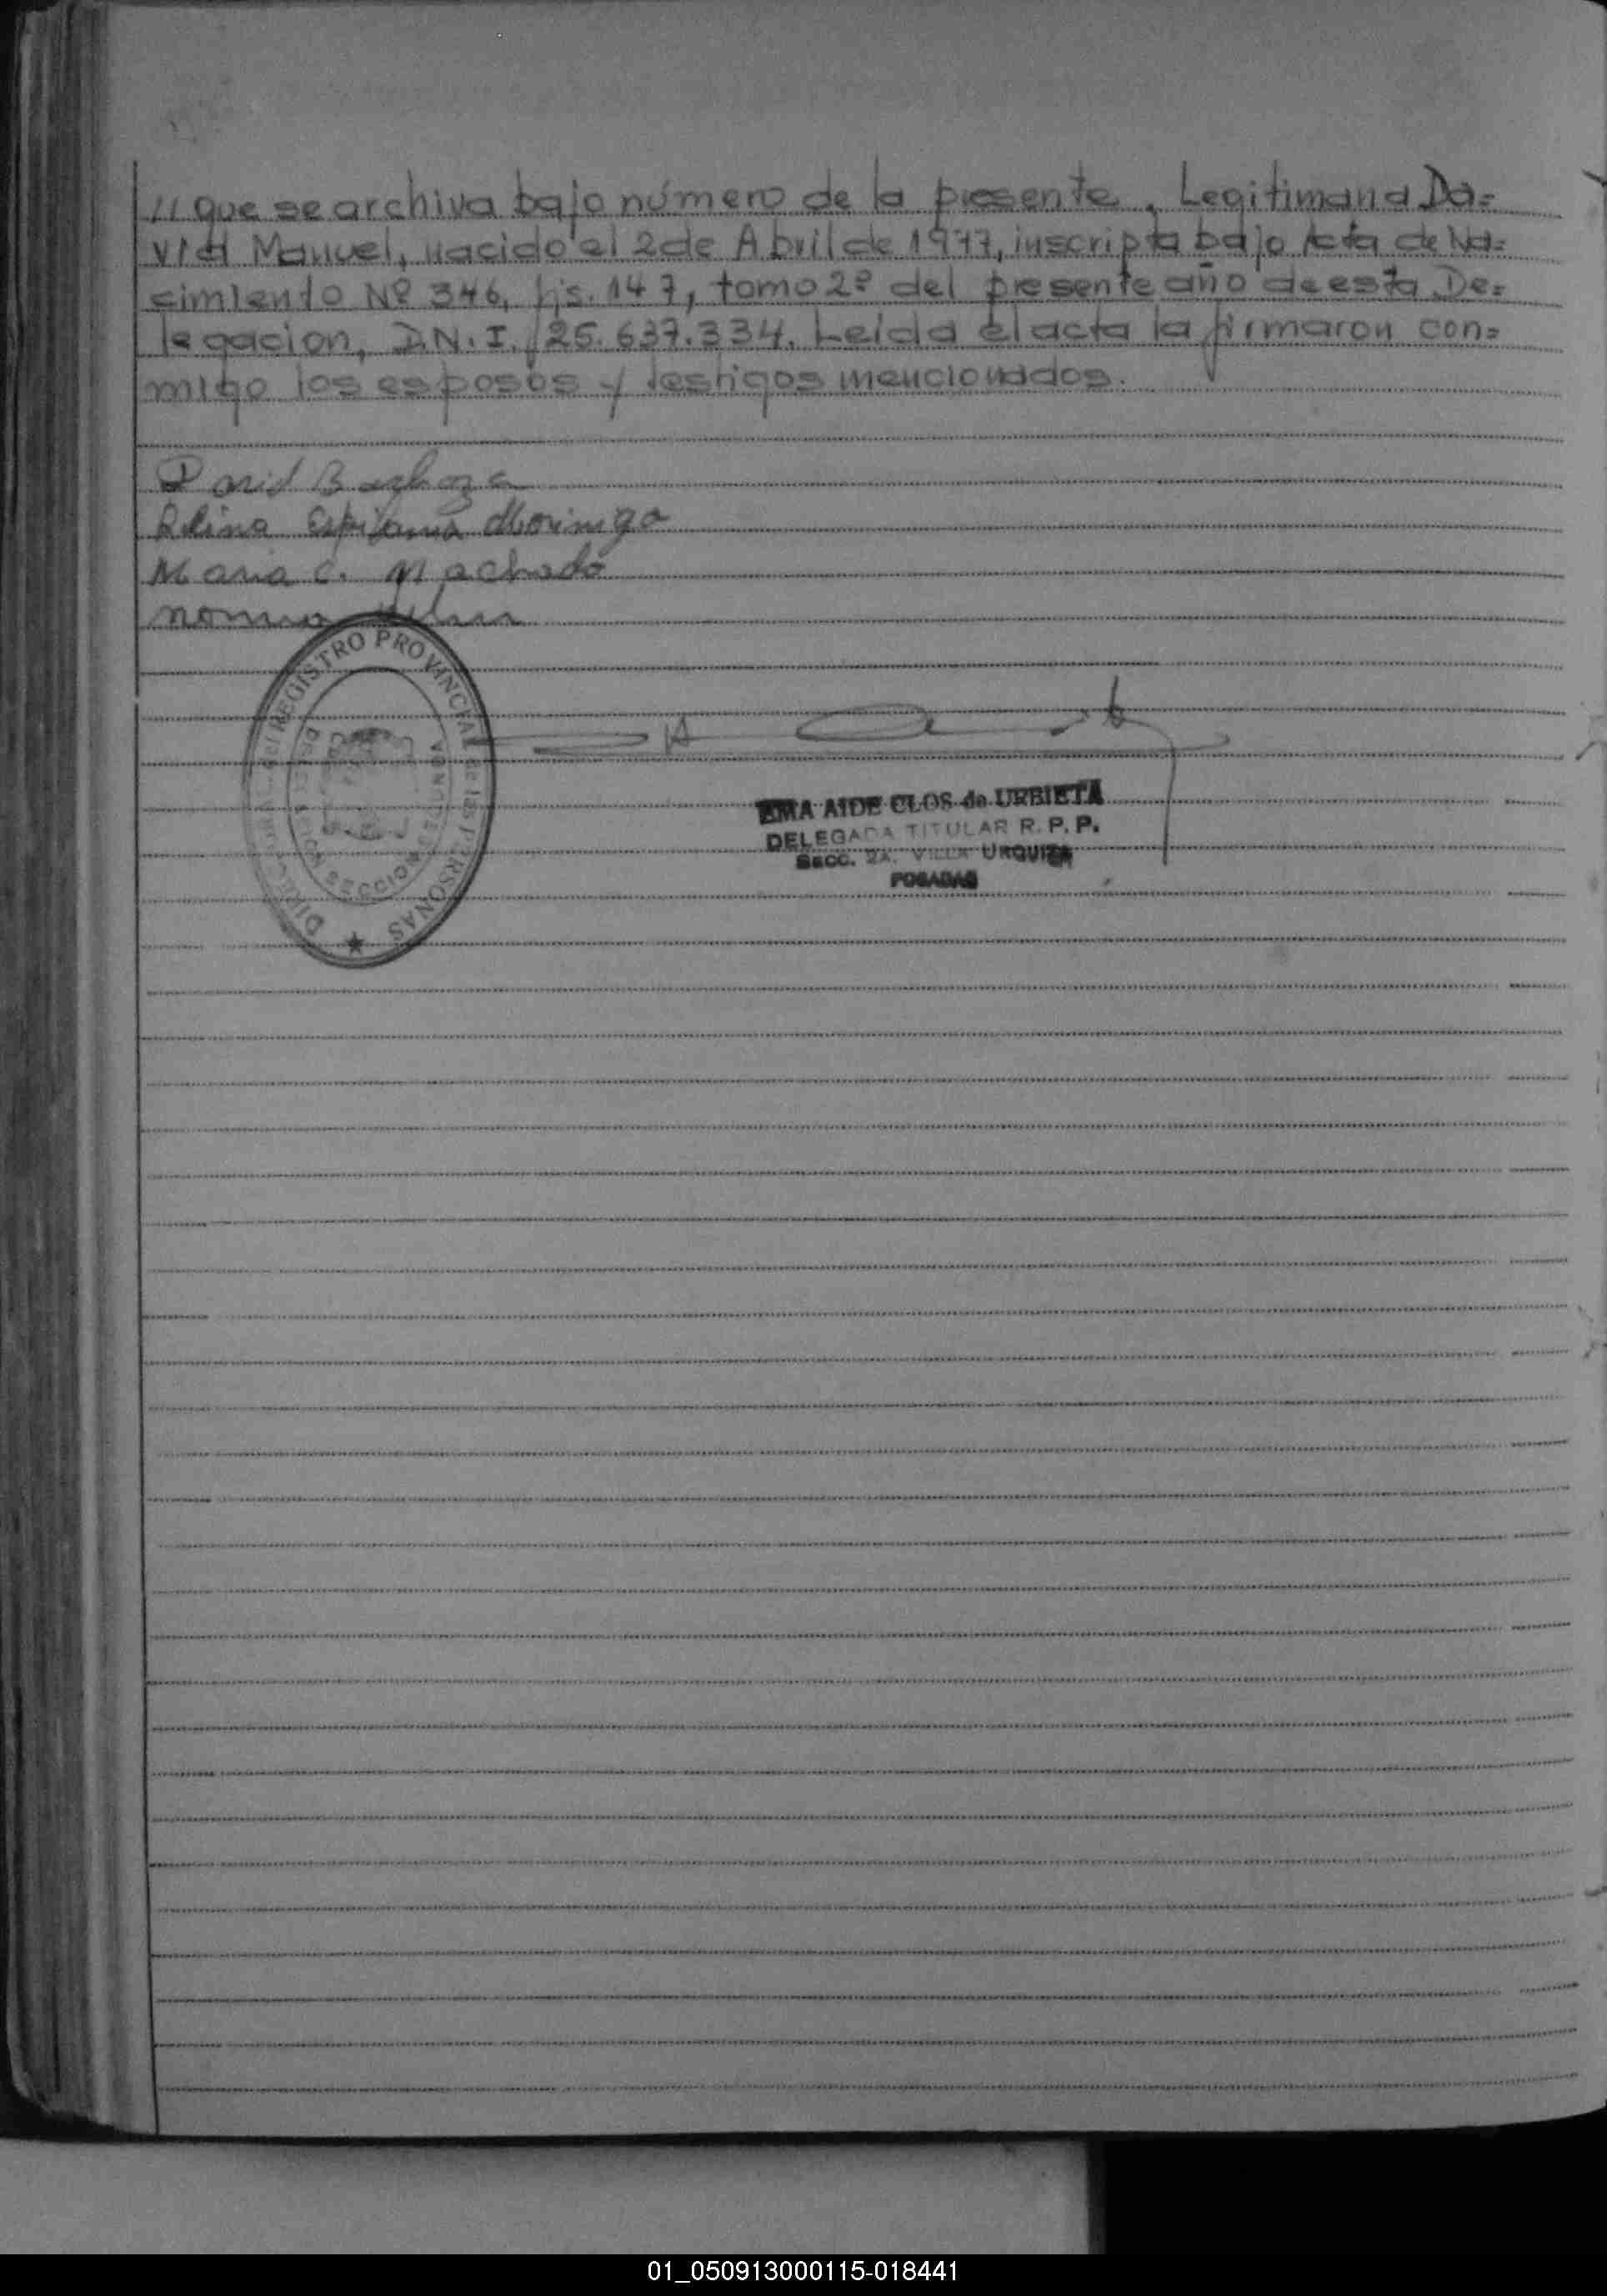 // que se archiva bajo número de la presente. Legitiman a Da=
vid Manuel, nacido el 2 de Abril de 1977, inscripta bajo Acta de Na=
cimiento Nº 346, fjs. 147, tomo 2º del presente año de esta De=
legacion, D.N.I. 25.637.334. Leida el acta la firmaron con=
migo los esposos y testigos mencionados.
David Barboza
Maria C. Machado
REGISTRO PROVINCIAL de las PERSONAS
SECCION
EMA AIDE CLOS de URBIETA
DELEGADA TITULAR R. P. P.
SECC. 2A. VILLA URQUIZA
POSADAS
01_050913000115-018441